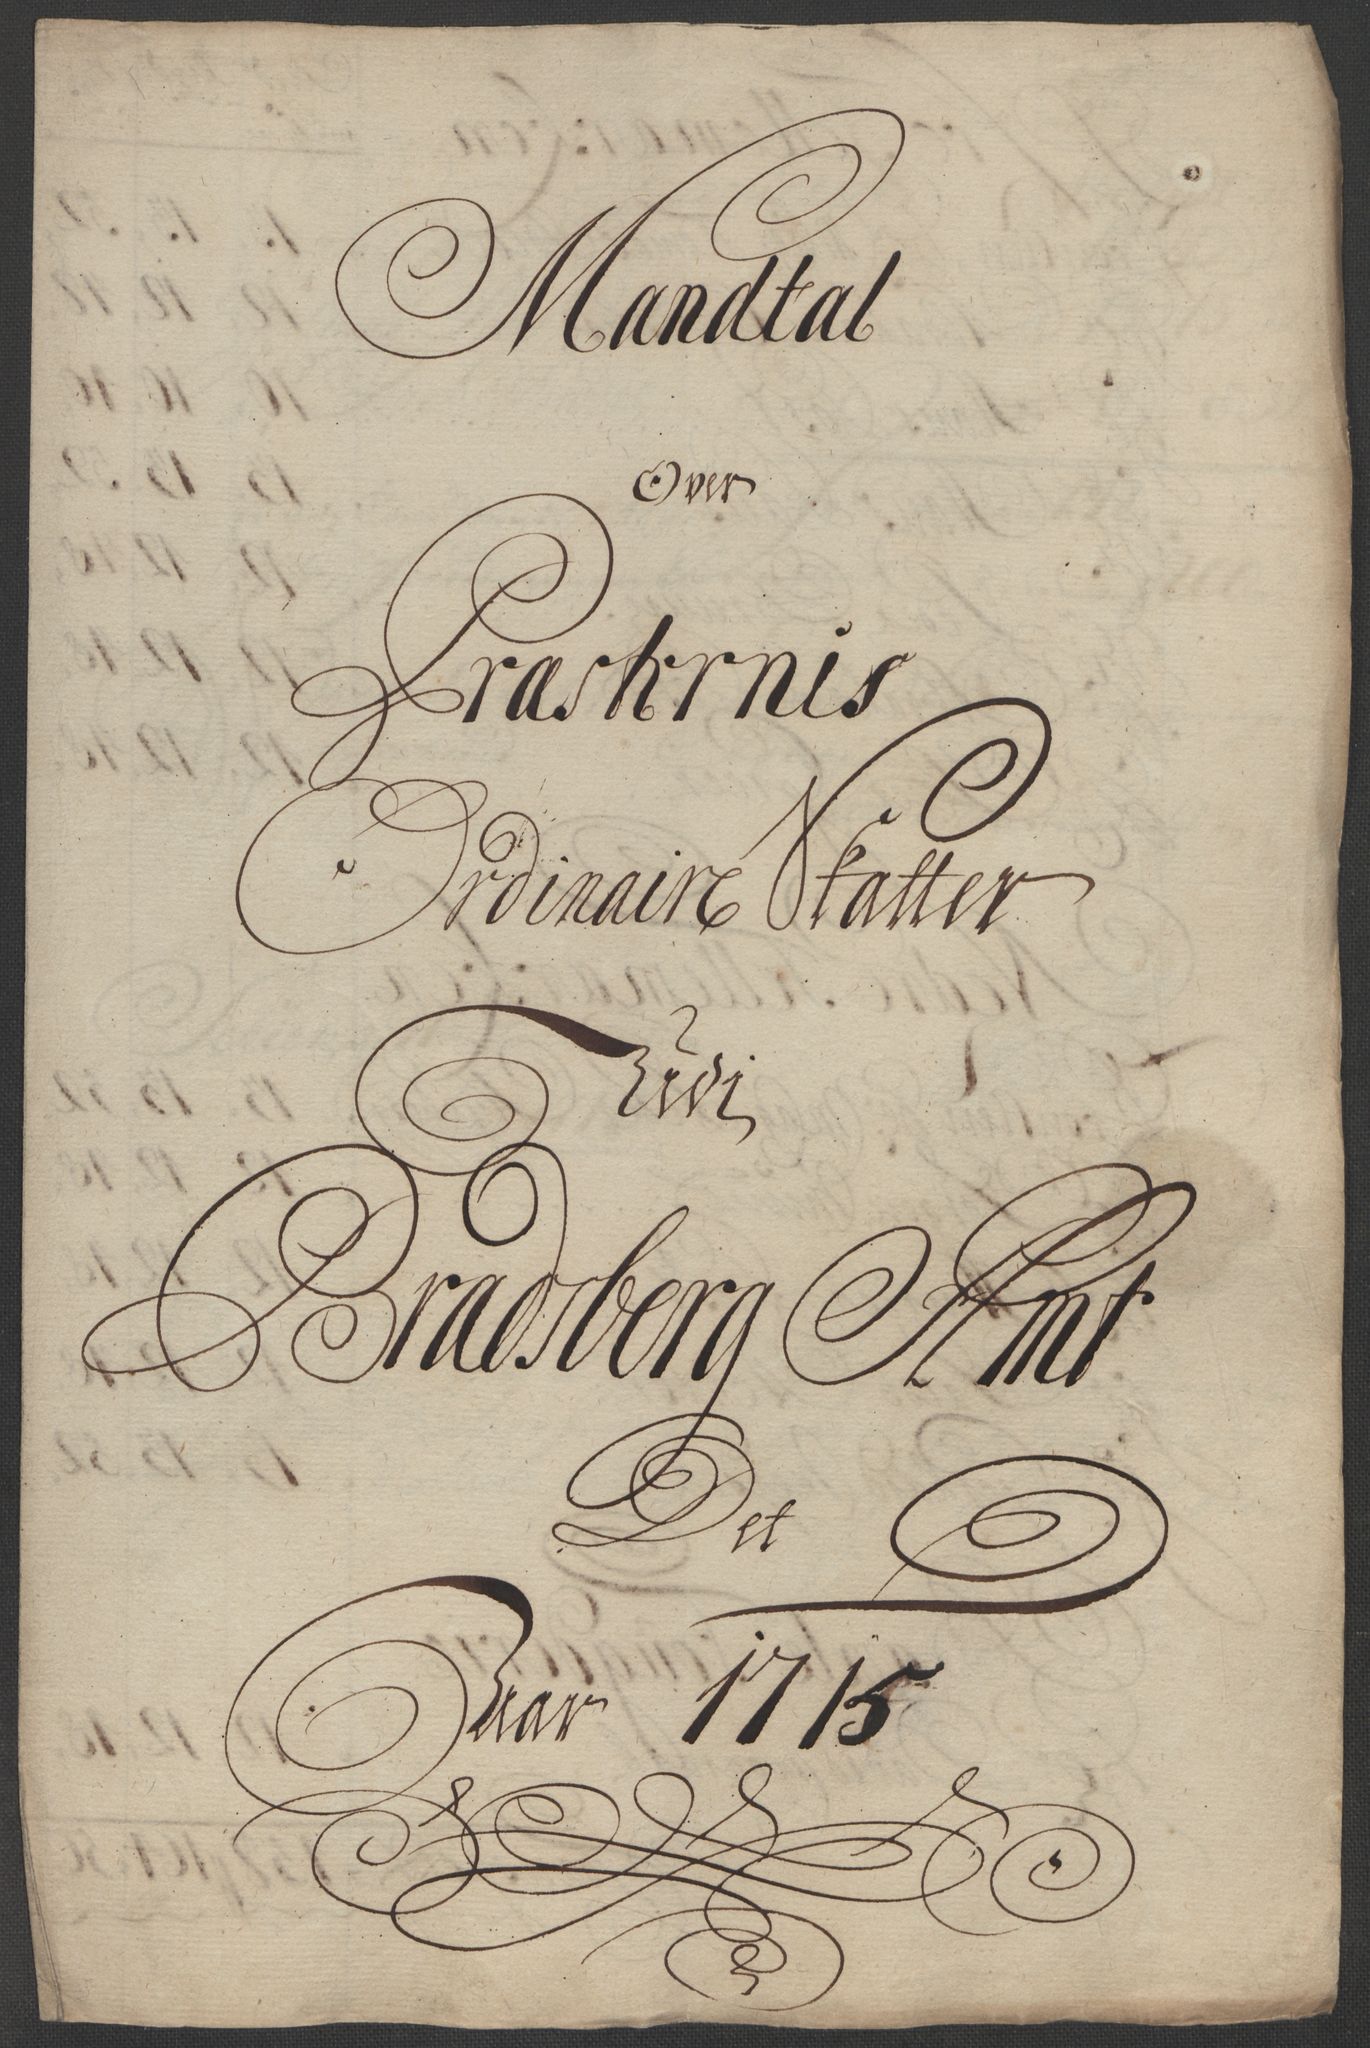 Mandtal
Over
Præsternis
Ordinaire Skatter
Udi
Bradsberg Amt
Det
Aar 1715